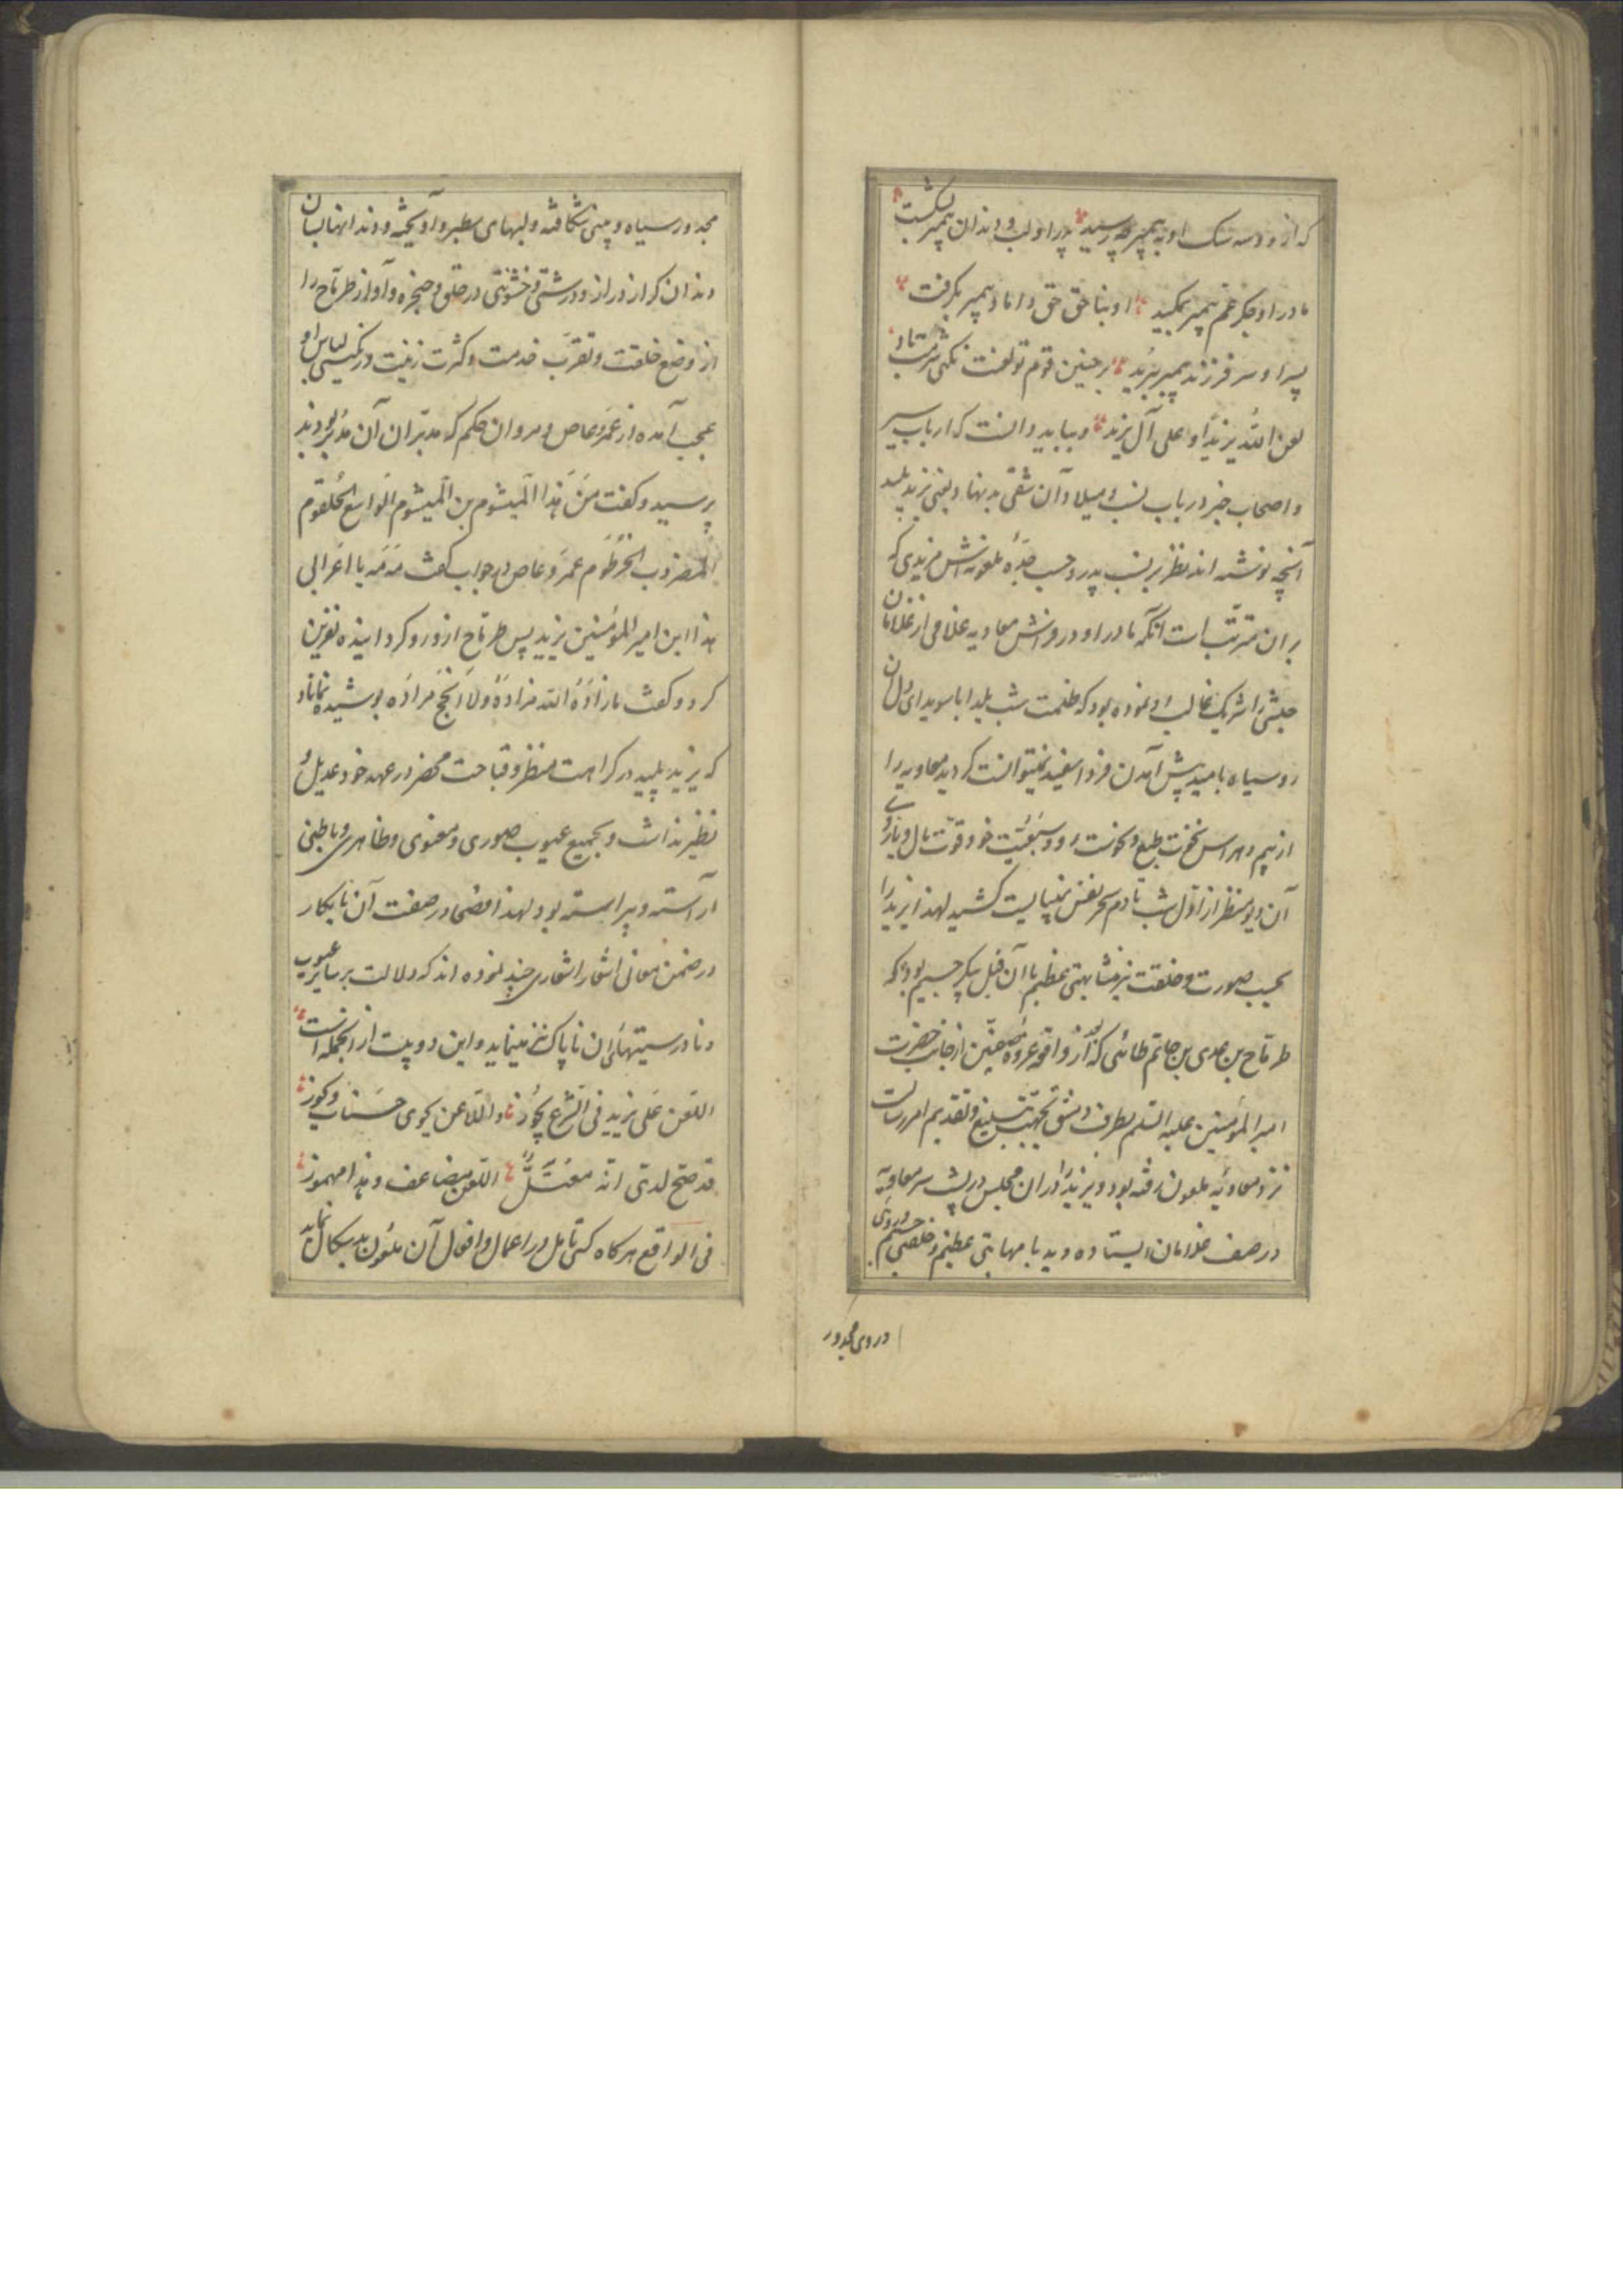 که از و دسه سک او به پیمبر چه رسید پدر او لب و دندان پیمبر بشکست
مادر او جکر عم پیمبر بمکید او بناحق حق داماد پیمبر بکرفت
پسر او سر فرزند پیمبر ببرید بر چنین قوم تو لعنت نکنی شرمت باد
لعن الله یزیدا و علی آل یزید و بباید دانست که ارباب سیر
و اصحاب خبر در باب نسب و میلاد آن شقی بدنهاد یعنی یزید پلید
آنچه نوشته اند نظر بر نسب پدر و حسب جدّه ملعونه اش مزیدی که
بران مترتب است آنکه مادر او در وانش معاویه غلامی از غلامان
حبشی را شریک غالب او نموده بود که ظلمت شب یلدا با سویدای دل آن
روسیاه بامید پیش آمدن فردا سفید نمیتوانست کردید معاویه را
از بیم و هراس نخوت طبع و نحوست رو و سبعیّت خو و قوّت بال و بازوی
آن دیو منظر از اوّل شب تا دم سحر نفس نمییارست کشید لهذا یزید را
بحسب صورت و خلقت نیز مشابهتی عظیم با آن فیل پیکر جسیم بود چنانکه
طرمّاح بن عدی بن حاتم طائی که بعد از واقعه غزوهٔ صفّین از جانب حضرت
امیر المؤمنین علیه السّلم بطرف دمشق بجهت تبلیغ و تقدیم امر رسالت
نزد معاویهٔ ملعون رفته بود و یزید را در ان مجلس در پشت سر معاویه
در صف غلامان ایستاده دید با مهابتی عظیم و خلقتی جسیم و روی
و روی مجدور
مجدور سیاه و بینی شکافته و لبهای سطبر و آویخته و دندانها بسان
دندان کراز دراز و درشتی و خشونتی در حلق و حنجره و آواز طرمّاح را
از وضع خلقت و تقرّب خدمت و کثرت زینت و رنکینی لباس او
عجب آمده از عمرو عاص و مروان حکم که مدبّران آن مدبر بودند
پرسید و کفت مَن هذا المیشوم بن المیشوم الواسع الحُلقوم
المضروب الخرطوم عمرو عاص در جواب کفت مَه مَه یا اعرابی
هذا ابن امیر المؤمنین یزید پس طرمّاح از و رو کردانیده نفرین
کرد و کفت ما زادَهُ الله مزادةً ولا انجح مرادَه پوشیده نماناد
که یزید پلید در کراهت منظر و قباحت محضر در عهد خود عدیل و
نظیر نداشت و بجمیع عیوب صوری و معنوی و ظاهری و باطنی
آراسته و پیراسته بود لهذا فصحا در صفت آن نابکار
در ضمن معانی اشعار اشعاری چند نموده اند که دلالت بر سایر عیوب
و نادرستیهای ان ناپاک نیز مینماید و این دو بیت از انجمله است
اللعن علی یزید فی الشرع یجوز و اللاعن یحوی حسنات و یفوز
قد صحّ لدیّ انه معتلٌّ اللعن مضاعف و هذا مهموز
فی الواقع هر کاه کسی تأمل در اعمال و افعال آن ملعون بدسکال نماید